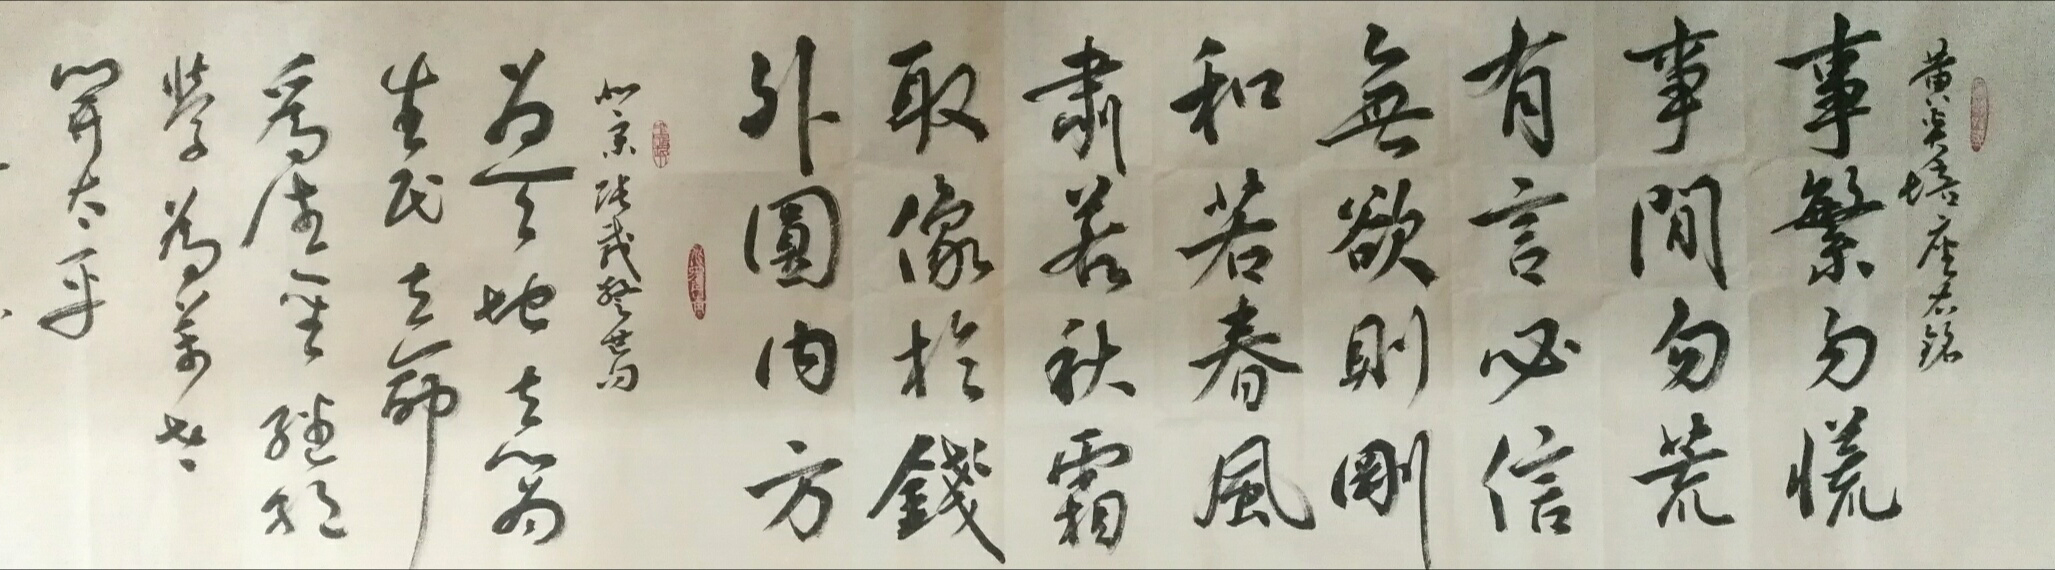 黄炎培座右銘
事繁勿慌
事閒勿荒
有言必信
無欲則剛
和若春風
肅若秋霜
取像於錢
外圓内方
北宋張載警世句
為天地立心為
生民立命
為往聖繼絕
學為萬世
開太平